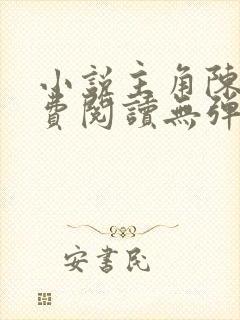 小說主角陳
費閱讀無彈
安書民